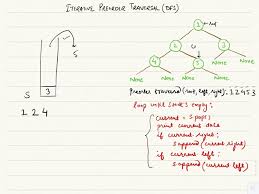 ITERATIVE PREORDER TRAVERSAL (DFS)
1
root
2
3
4
5
None
None
None
None
None
None
S
3
S
1 2 4
Preorder traversal (root, left, right): 1 2 4 5 3
loop until stack S empty:
current = S.pop()
print current data
if current.right:
S.append(current.right)
if current.left:
S.append(current.left)